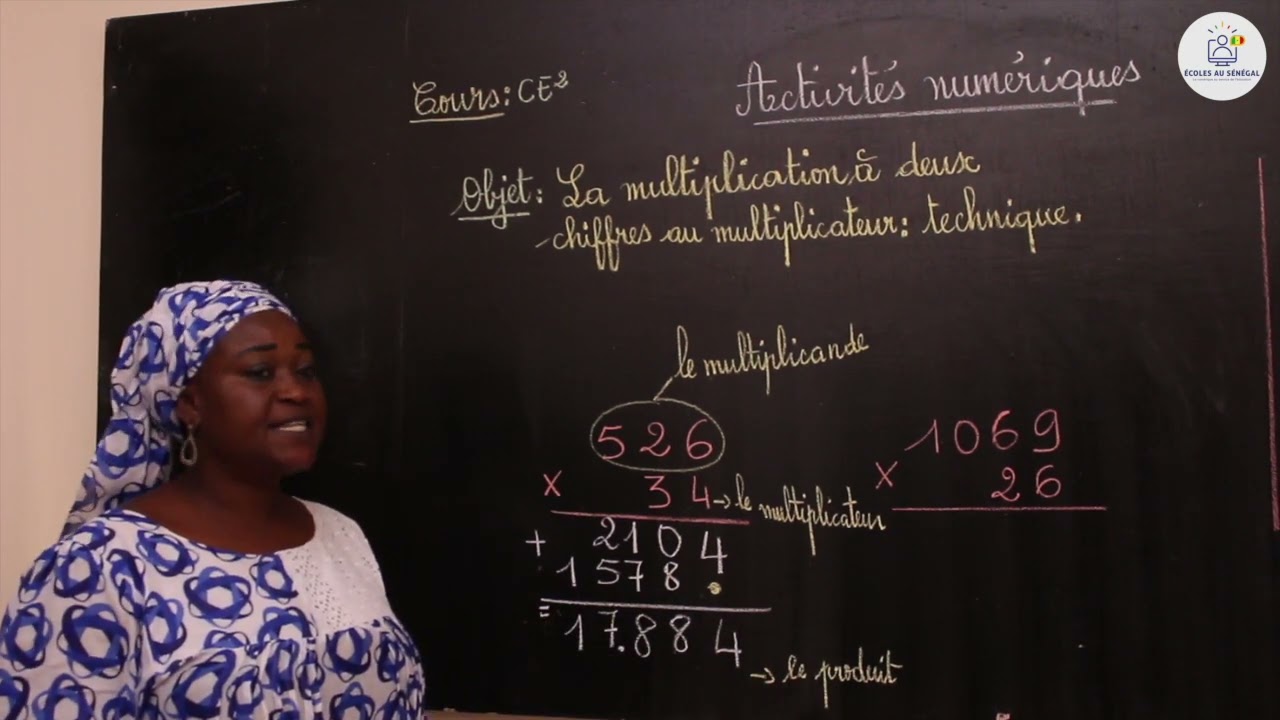 ÉCOLES AU SÉNÉGAL
Cours: CE2
Activités numériques
Objet: La multiplication à deux
chiffres au multiplicateur: technique.
le multiplicande
526
x 34 → le multiplicateur
+ 2104
1578.
= 17.884
→ le produit
1069
x 26